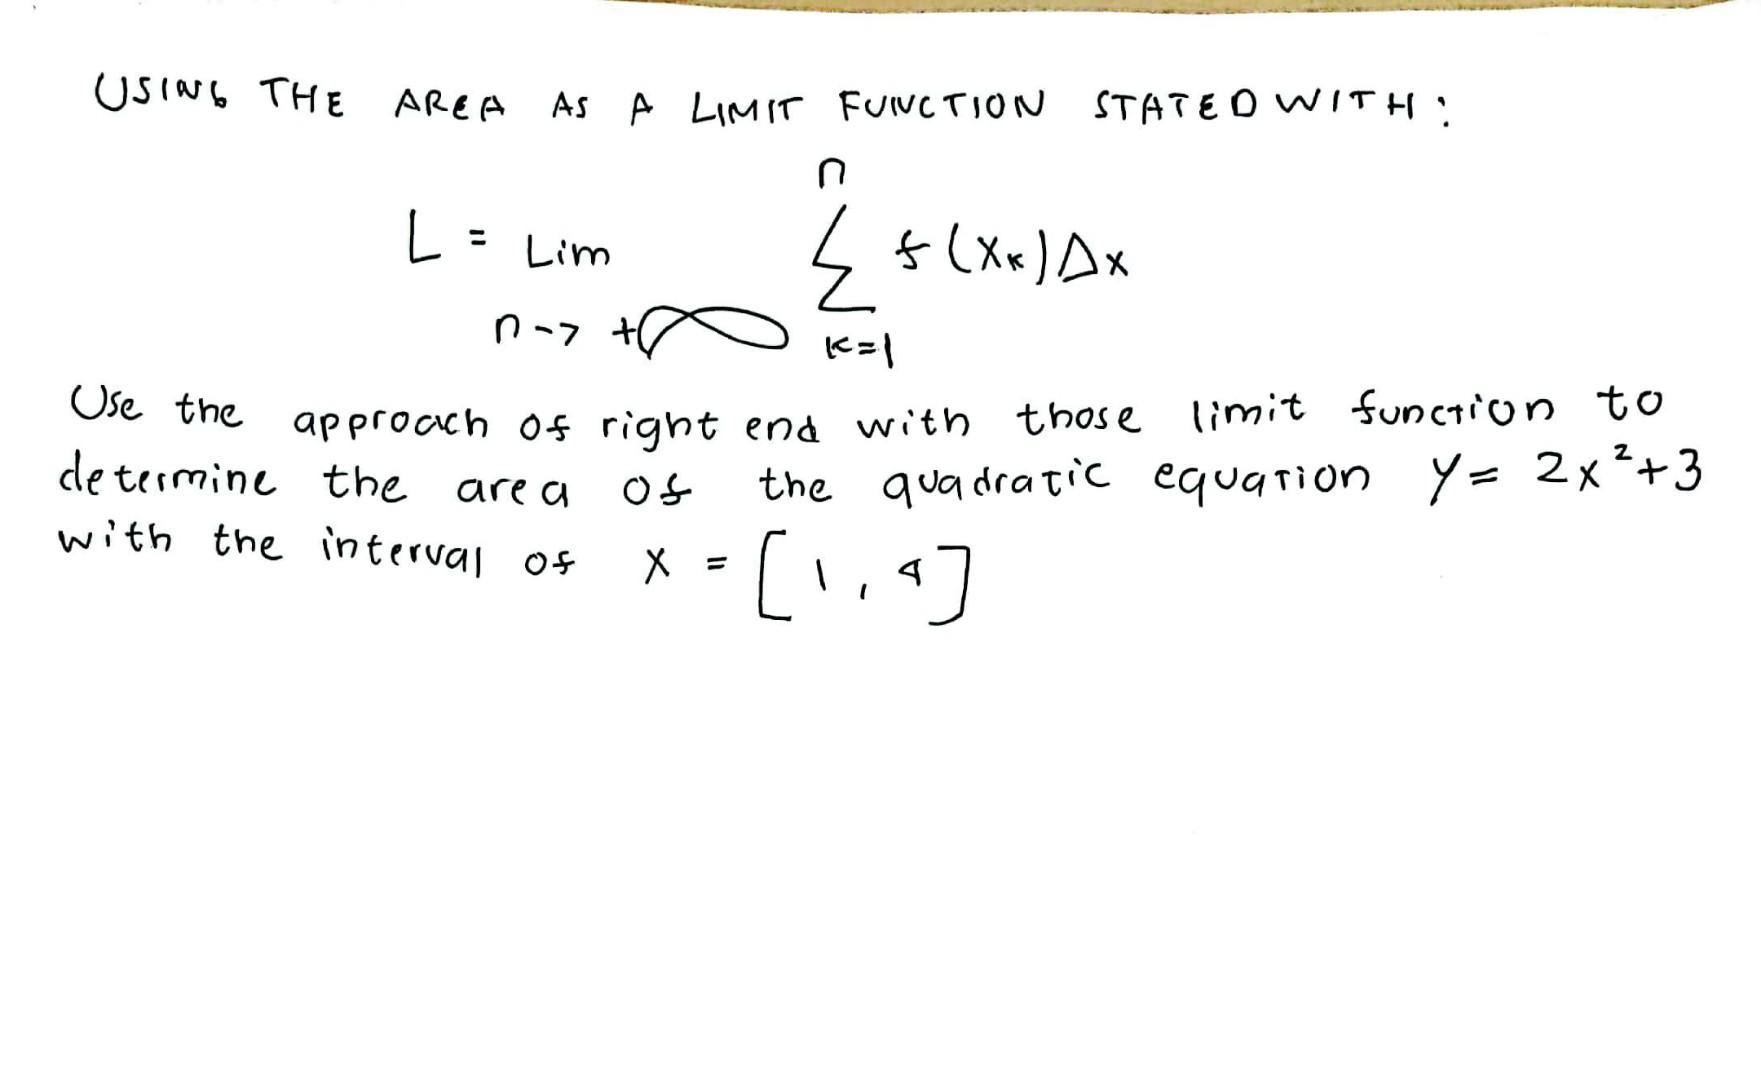 USING THE AREA AS A LIMIT FUNCTION STATED WITH :
n
L = Lim Σ f(xₖ)Δx
n -> +∞ k=1
Use the approach of right end with those limit function to
determine the area of the quadratic equation y = 2x²+3
with the interval of x = [1, 4]